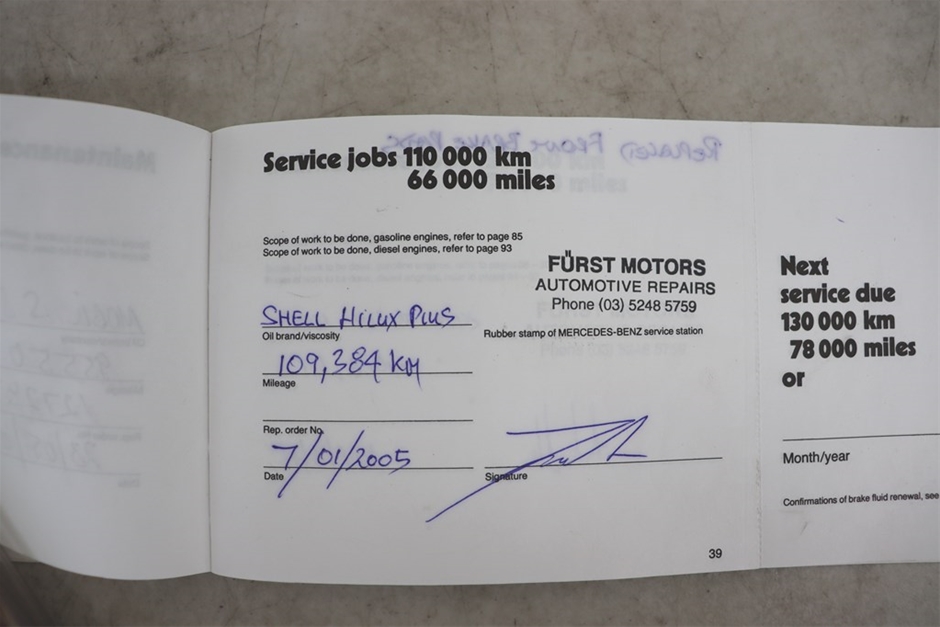 Service jobs 110 000 km
66 000 miles
Scope of work to be done, gasoline engines, refer to page 85
Scope of work to be done, diesel engines, refer to page 93
FÜRST MOTORS
AUTOMOTIVE REPAIRS
Phone (03) 5248 5759
Rubber stamp of MERCEDES-BENZ service station
SHELL HILUX PLUS
Oil brand/viscosity
109,384 KM
Mileage
Rep. order No.
7/01/2005
Date
Signature
39
Next
service due
130 000 km
78 000 miles
or
Month/year
Confirmations of brake fluid renewal, see